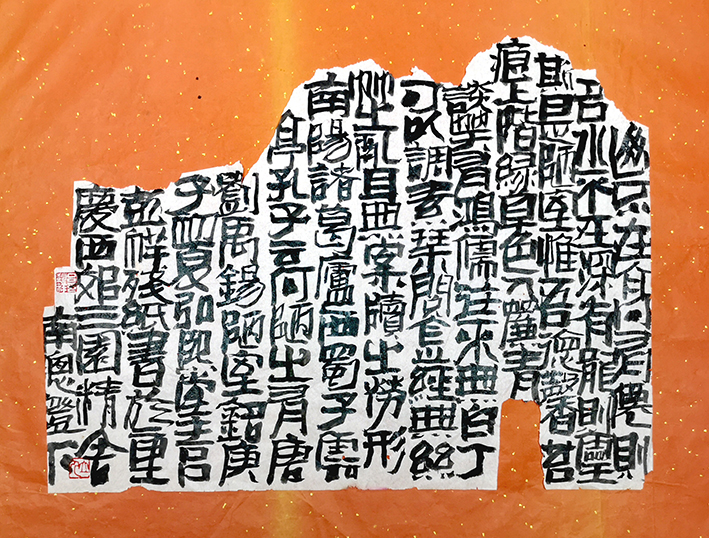 山不在高有僊則
名水不在深有龍則靈
斯是陋室惟吾德馨苔
痕上階緑草色入簾青
談笑有鴻儒往来無白丁
可以調素琴閲金經無絲
竹之乱耳無案牘之勞形
南陽諸葛廬西蜀子雲
亭孔子云何陋之有唐
劉禹錫陋室銘庚
子夏弘興堂主吕
祥残紙書於里
慶西郊三園精舍
南窗燈下